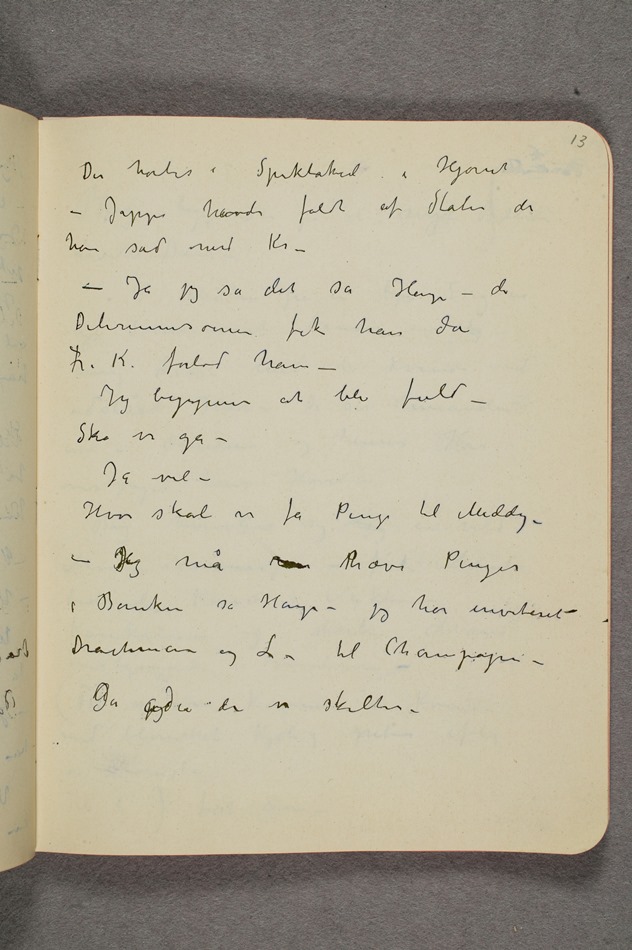 13
Der hørtes i Spektakel i Hjørnet
– Jeppe havde faldt af Stolen der
han sad med Kr –
– Ja jeg sa det sa Hauge – de
Deliriumsonen fik han da
Fr. K. forlod ham –
Jeg begynner at bli fuld –
Ska vi ga –
Ja vel –
Hvor skal vi fa Penge til Middag –
– Jeg må hæve Penger
i Banken sa Hauge – jeg har inviteret
Drachman og L – til Champagne –
Da de vi skiltes –